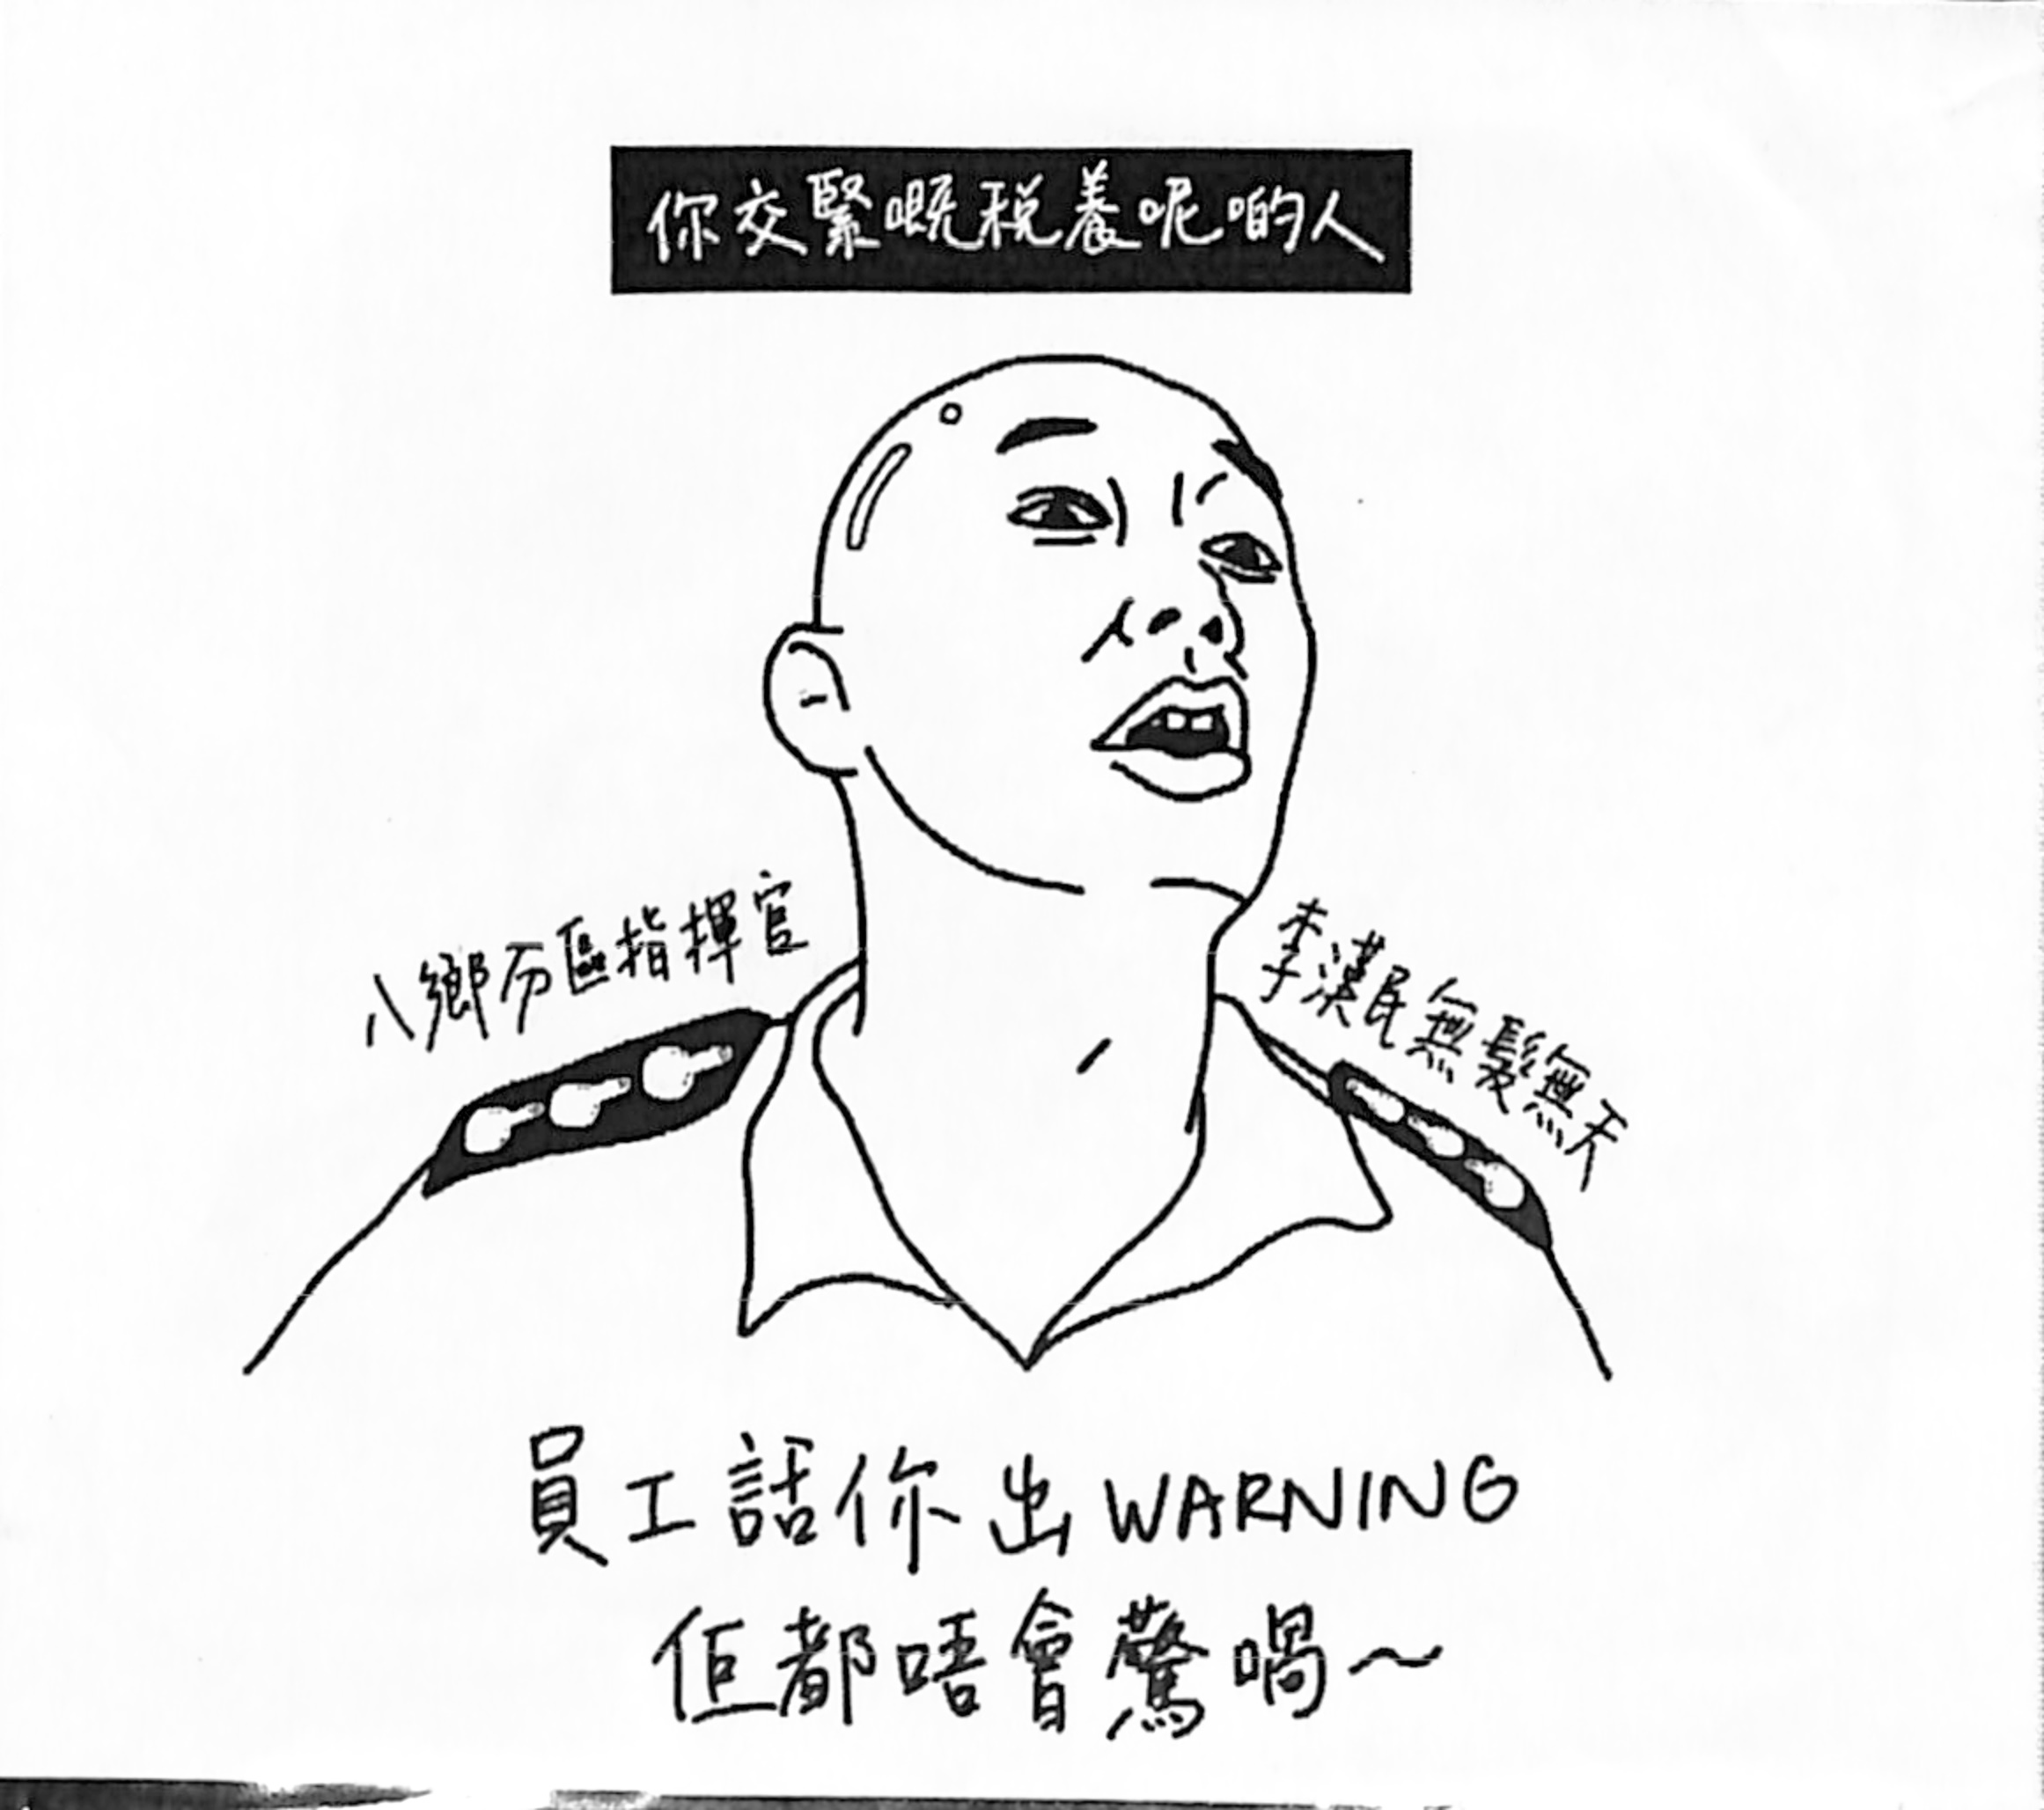 你交緊嘅税養呢啲人
八鄉分區指揮官
李漢民無髮無天
員工話你出WARNING
佢都唔會驚喎～